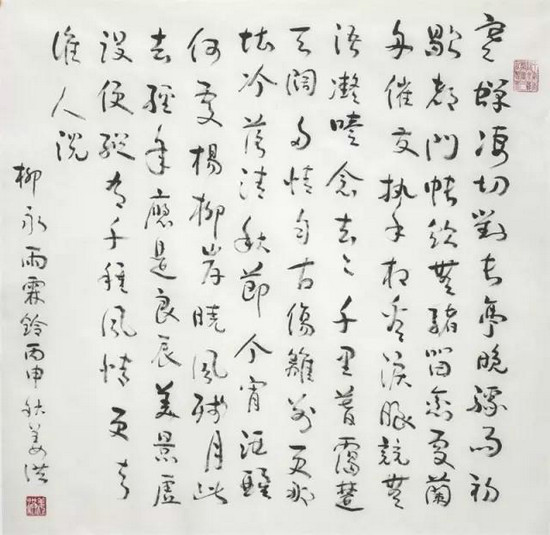 寒蟬淒切對長亭晚驟雨初
歇都門帳飲無緒留戀處蘭
舟催發執手相看淚眼競無
語凝噎念去々千里暮靄楚
天闊多情自古傷離別更那
堪冷落清秋節今宵酒醒
何處楊柳岸曉風殘月此
去經年應是良辰美景虛
設便縱有千種風情更與
誰人說
柳永雨霖鈴丙申秋姜洪